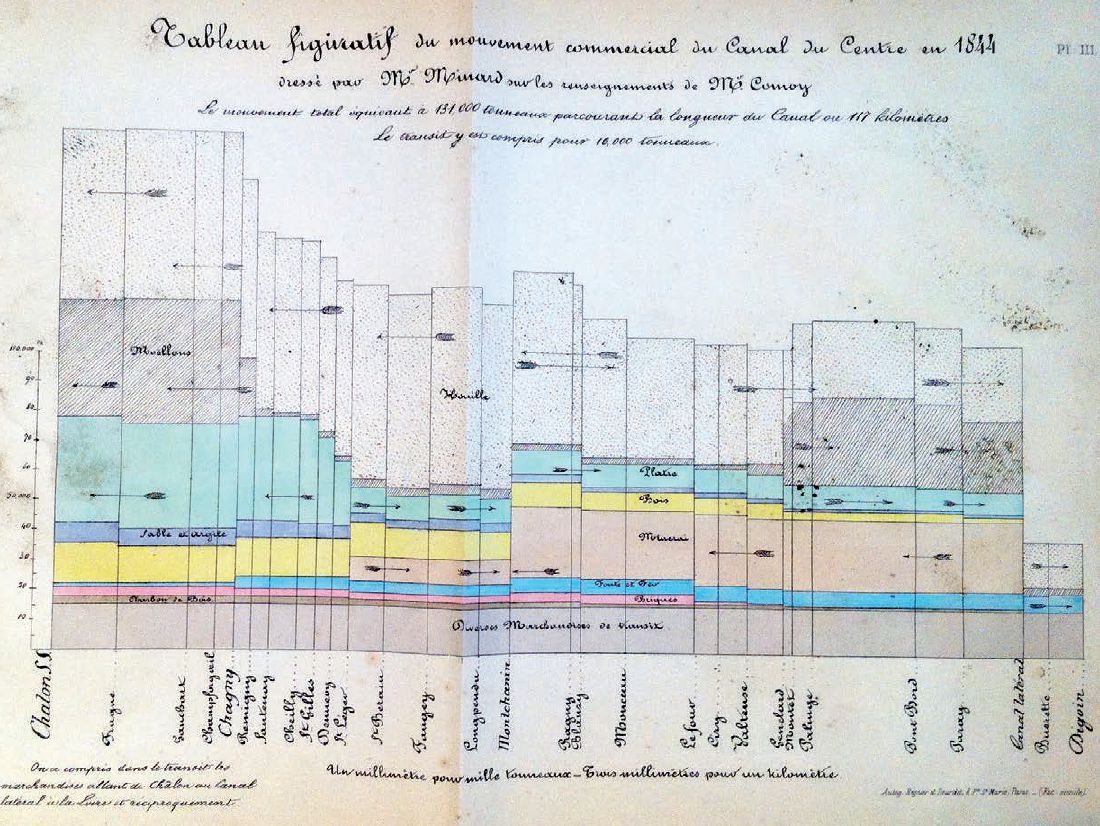 Tableau figuratif du mouvement commercial du Canal du Centre en 1844
Pl. III.
dressé par Mr. Minard sur les renseignements de Mr. Comoy
Le mouvement total équivaut à 131,000 tonneaux parcourant la longueur du Canal ou 117 kilomètres
Le transit y est compris pour 16,000 tonneaux.
100,000
90
80
70
60
50,000
40
30
20
10
Moellons
Houille
Plâtre
Bois
Sable et argile
Minerai
Fonte et Fer
Briques
Charbon de Bois
Diverses Marchandises de transit.
Chalon S.S.
Fragne
Chagny
Remigny
Santenay
Cheilly
St. Gilles
Dennevy
St. Léger
St. Berain
Longpendu
Montchanin
Ragny
Blanzy
Monceau
Ciry
Génelard
Palinge
Paray
Canal latéral
Digoin
On a compris dans le transit les
marchandises allant de Châlon au Canal
latéral à la Loire et réciproquement.
Un millimètre pour mille tonneaux _ Trois millimètres pour un kilomètre.